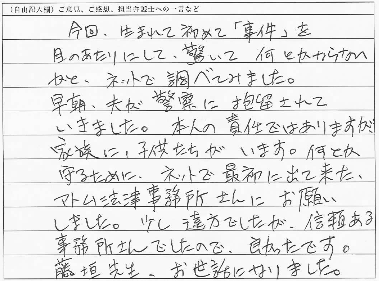 (自由記入欄)ご意見、ご感想、担当弁護士への一言など
今回、生まれて初めて「事件」を
目のあたりにして、驚いて何とかならない
かと、ネットで調べてみました。
早朝、夫が警察に拘留されて
いきました。本人の責任ではありますが
家族に、子供たちがいます。何とか
守るために、ネットで最初に出て来た、
アトム法律事務所さんにお願い
しました。少し遠方でしたが、信頼ある
事務所さんでしたので、良かったです。
藤垣先生、お世話になりました。